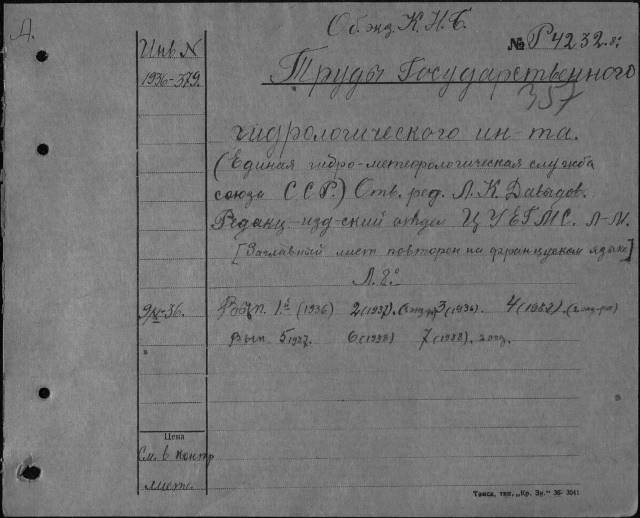 Д.
Об. экз. К.Н.Б.
Инв. N
№ Р4232.8:
1936-379.
Труды Государственного
357
гидрологического ин-та.
(Единая гидро-метеорологическая служба
союза ССР.) Отв. ред. Л.К. Давыдов.
Редакц-изд-ский отдел ЦУЕГМС. Л-М.
[Заглавный лист повторен на французском языке]
Л. 8°
36. Вып. 1. (1936) 2 (1937). 3 (1936). 4 (1938).
Вып. 5 1937. 6 (1938) 7 (1938).
Цена
См. в контр
лист.
Тамск, тип. „Кр. Зн." 36- 3041